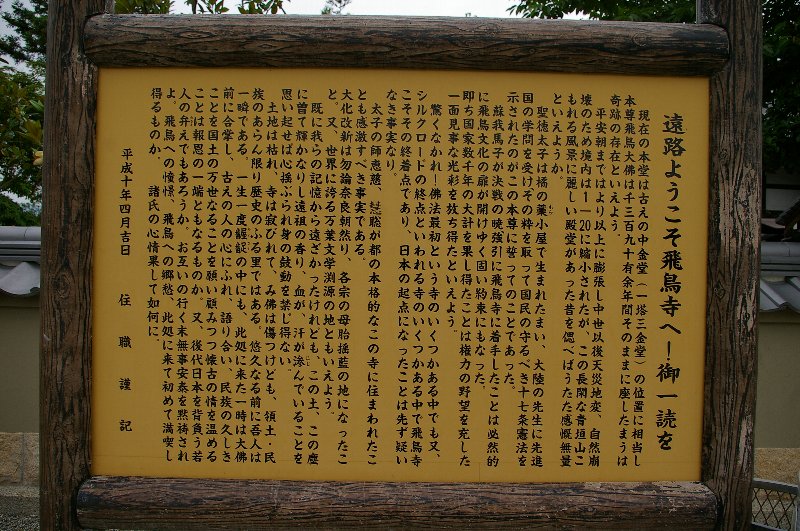 遠路ようこそ飛鳥寺へ！御一読を
現在の本堂は古えの中金堂（一塔三金堂）の位置に相当し
本尊飛鳥大佛は千三百九十有余年間そのままに座したまうは
奇跡の存在といえよう。
平安朝まではより以上に膨張し中世以後天災地変、自然崩
壊のため境内は1－20に縮小されたが、この長閑な青垣山こ
もれる風景に麗しい殿堂があった昔を偲べばうたた感慨無量
といえようか。
聖徳太子は橘の藁小屋で生まれたまい、大陸の先生に先進
国の学問を受けその粋を取って国民の守るべき十七条憲法を
示されたのがこの本尊に誓ってのことであった。
蘇我馬子が決戦の暁強引に飛鳥寺に着手したことは必然的
に飛鳥文化の扉が開けゆく固い約束にもなった。
即ち国家数千年の大計を果し得たことは権力の野望を充した
一面見事な光彩を放ち得たといえよう。
驚くなかれ！佛法最初という寺のいくつかある中でも又、
シルクロードの終点といわれる寺のいくつかある中で飛鳥寺
こそその終着点であり、日本の起点になったことは先ず疑い
なき事実なり。
太子の師恵慈、慧聡が都の本格的なこの寺に住まわれたこ
とも感激すべき事実である。
大化改新は勿論奈良朝然り、各宗の母胎揺藍の地になったこ
と。又、世界に誇る万葉文学渕源の地ともいえよう。
既に我らの記憶から遠ざかったけれども、この土、この塵
に曽て輝かなりし遠祖の香り、血が、汗が滲んでいることを
思い起せば心揺ぶられ身の鼓動を禁じ得ない。
土地は枯れ、寺は寂びれて、み佛は傷つけども、領土・民
族のあらん限り歴史のふる里ではある。悠久なる前に吾人は
一瞬である。一生一度饂飥の中にも、此処に来た一時は大佛
前に合掌し、古えの人の心にふれ、語り合い、民族の久しき
ことを国土の万世なることを願い顧みつつ懐古の情を温める
ことは報恩の一端ともなるものか。又、後代日本を背負う若
人の弁えでもあろうか。お互いの行く末無事安泰を黙祷され
よ。飛鳥への憧憬、飛鳥への郷愁、此処に来て初めて満喫し
得るものか。　諸氏の心情果して如何に。
平成十年四月吉日　住職謹記